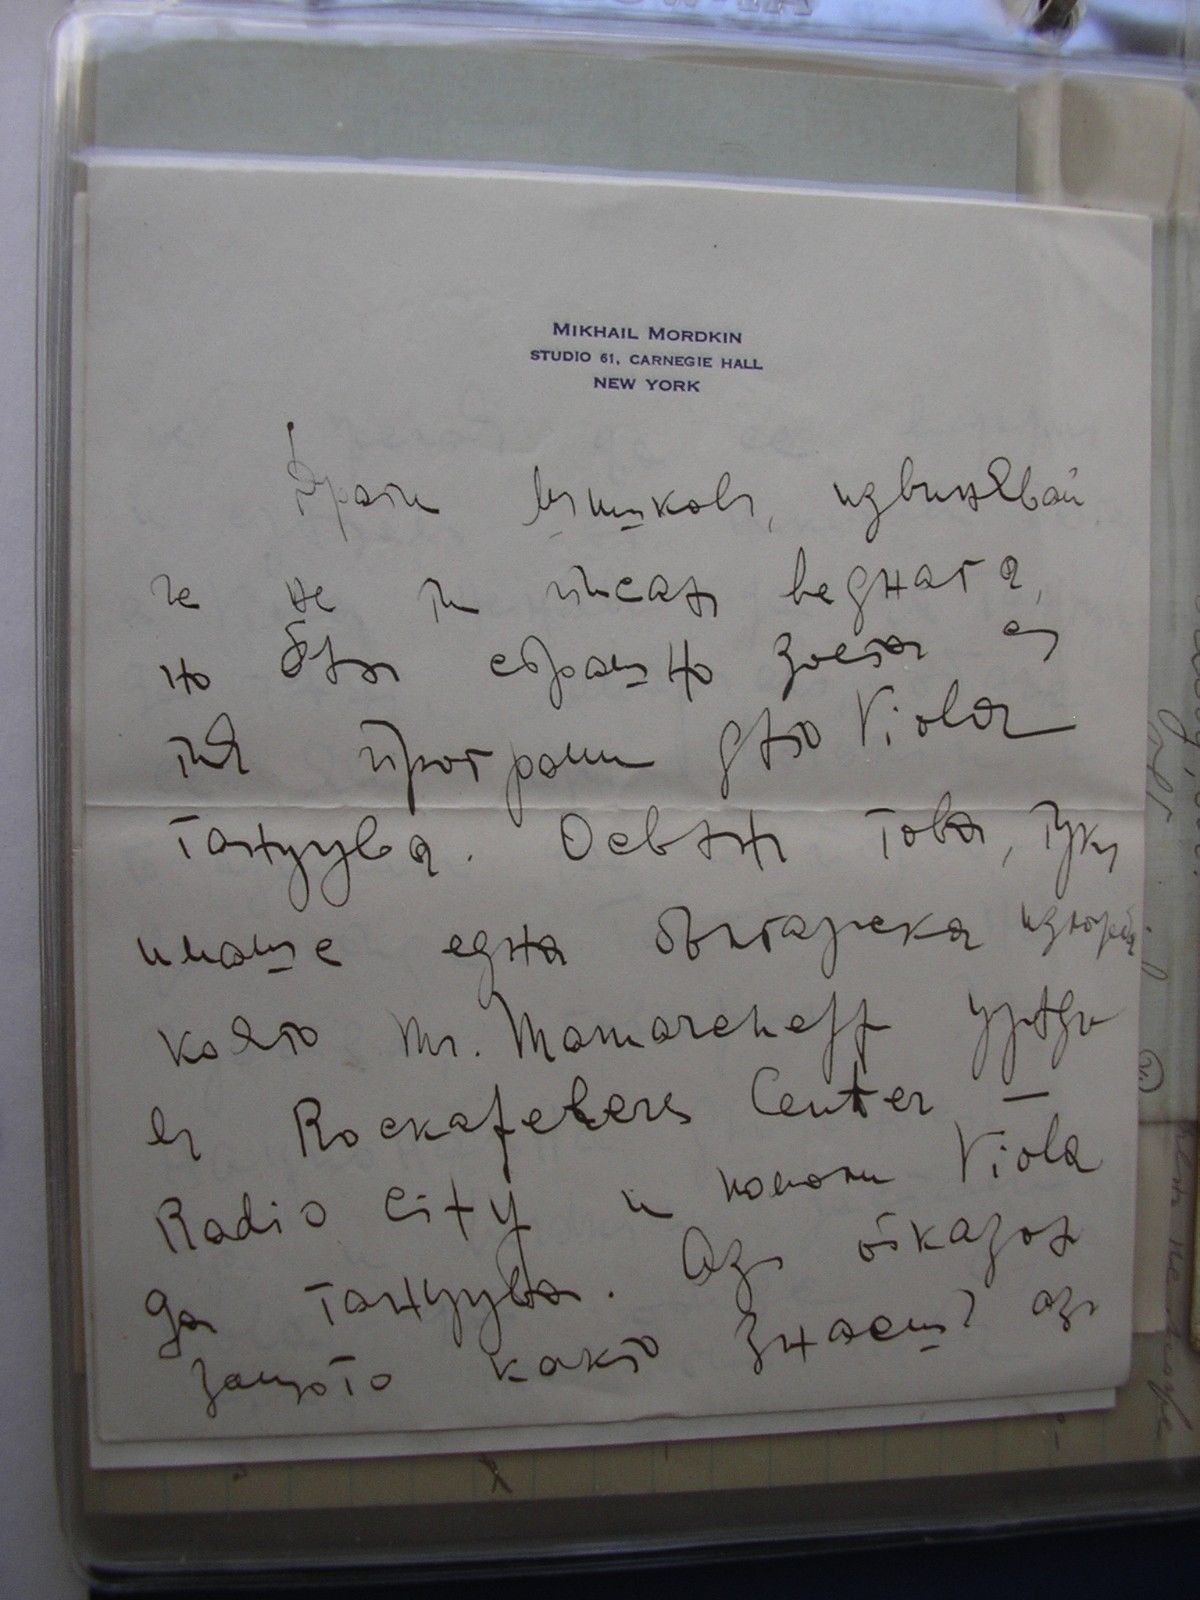 MIKHAIL MORDKIN
STUDIO 61, CARNEGIE HALL
NEW YORK
Драги Вълковъ, извинѣвай
че не ти писахъ веднага,
но бѣхъ страшно заетъ съ
тия програми дѣто Viola
танцува. Освѣнъ това, тукъ
имаше една българска изложба
която Mr. Mamarcheff уреди
въ Rockafelers Center —
Radio City и покани Viola
да танцува. Азъ отказахъ
защото както знаешъ азъ